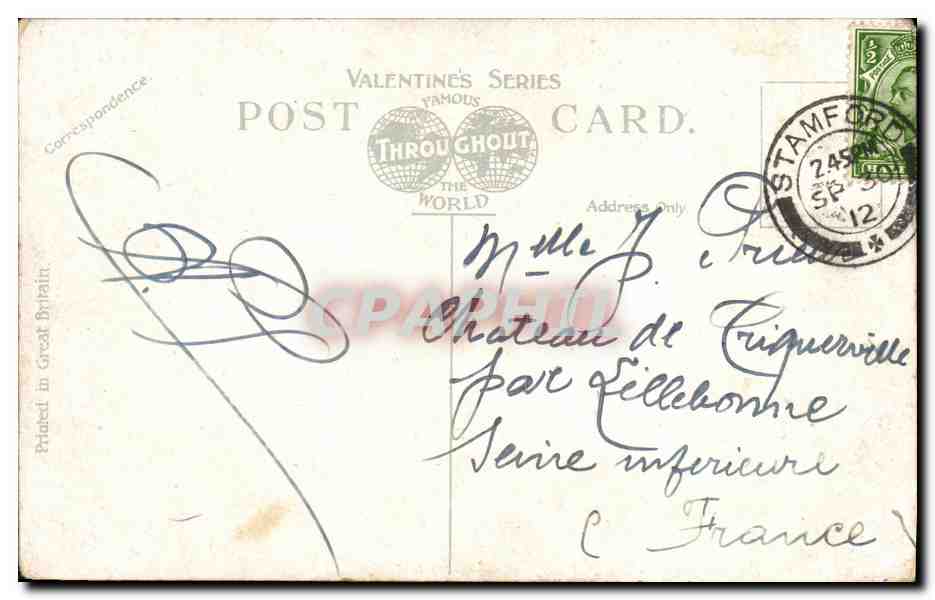 VALENTINE'S SERIES
FAMOUS
POST CARD.
THROUGHOUT
THE
WORLD
Correspondence.
Address Only.
Printed in Great Britain
½
POSTAGE
STAMFORD
2.45PM
SP 30
12
Mlle J.
Chateau de Triquerville
par Lillebonne
Seine inferieure
( France )
CPAPHIL